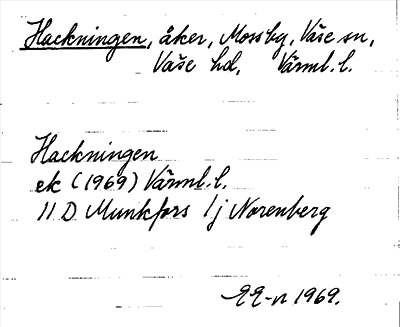 Hackningen, åker, Mossby, Väse sn,
Väse hd, Värml. l.
Hackningen
ek (1969) Värml. l.
11 D Munkfors 1j Norenberg
1969.